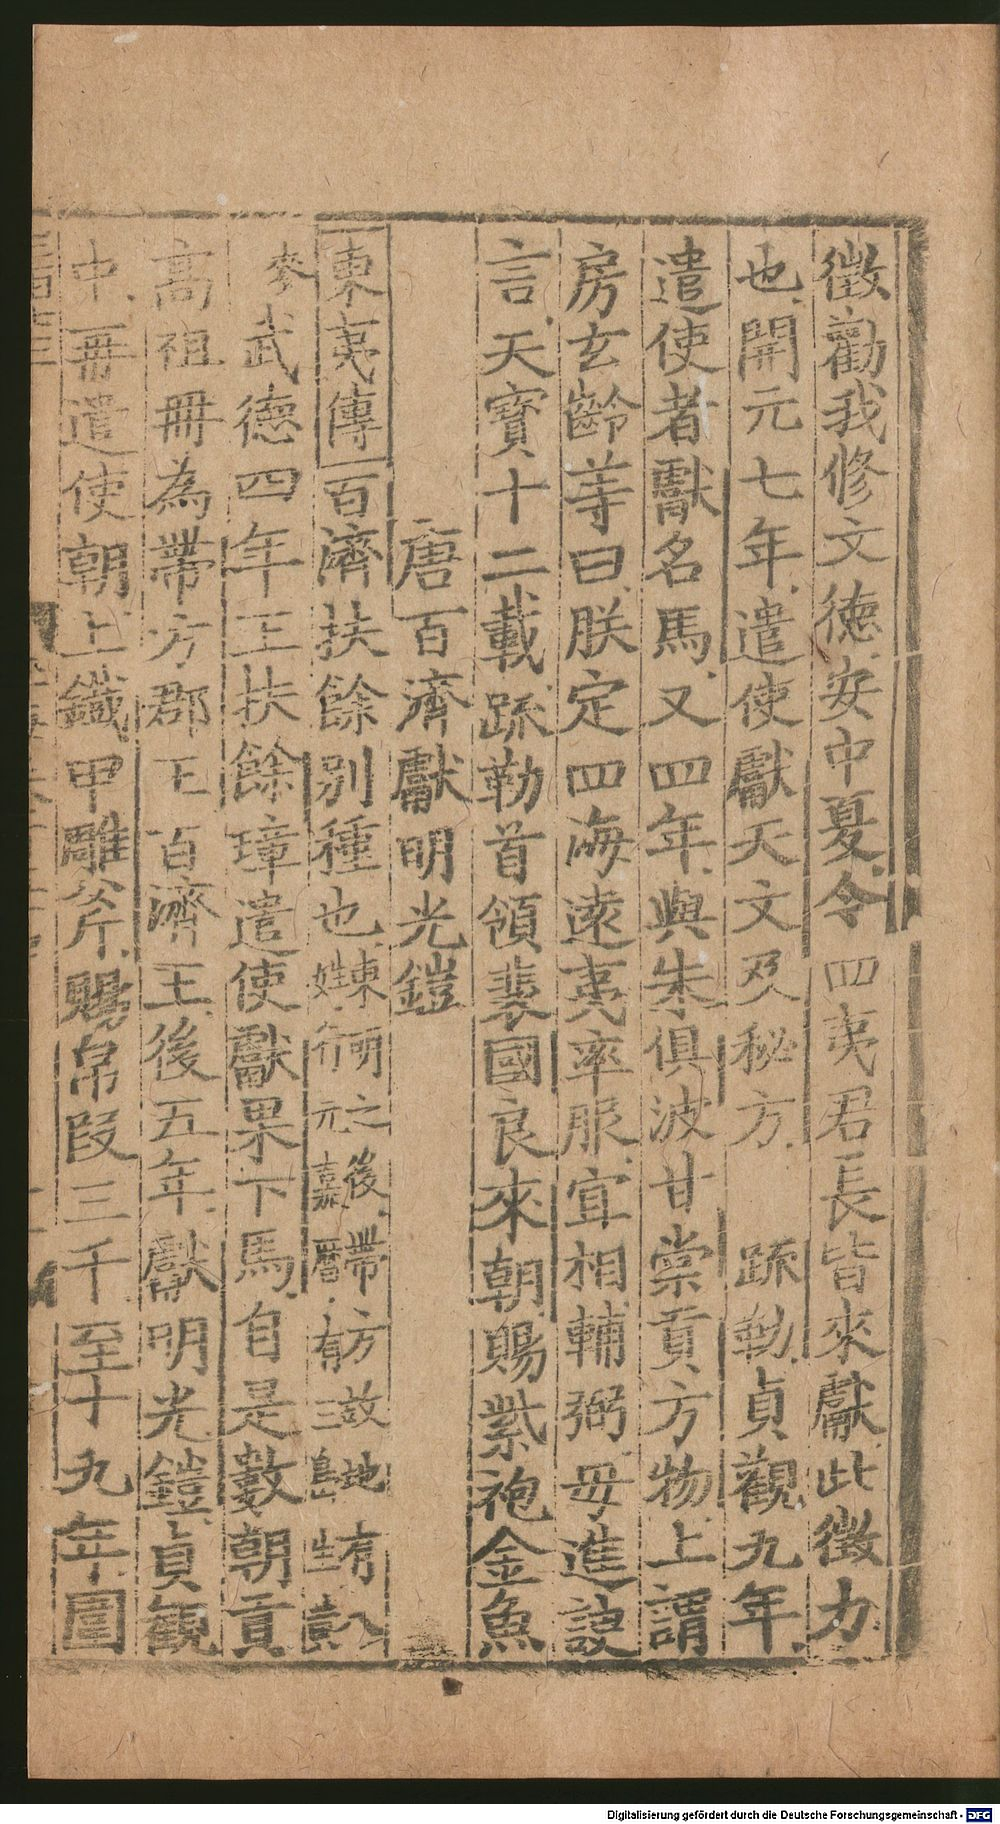 徵勸我修文德安中夏令四夷君長皆來獻此徵力
也開元七年遣使獻天文及秘方 疏勒貞觀九年
遣使者獻名馬又四年與朱俱波甘棠貢方物上謂
房玄齡等曰朕定四海遠夷率服宜相輔弼毋進諛
言天寶十二載疏勒首領裴國良來朝賜紫袍金魚
唐百濟獻明光鎧
東夷傳百濟扶餘別種也
之後帶方故地有八
行元嘉曆有三島生黃
麥武德四年王扶餘璋遣使獻果下馬自是數朝貢
高祖冊為帶方郡王百濟王後五年獻明光鎧貞觀
中再遣使朝上鐵甲雕斧賜帛段三千至十九年圓
Digitalisierung gefördert durch die Deutsche Forschungsgemeinschaft - DFG